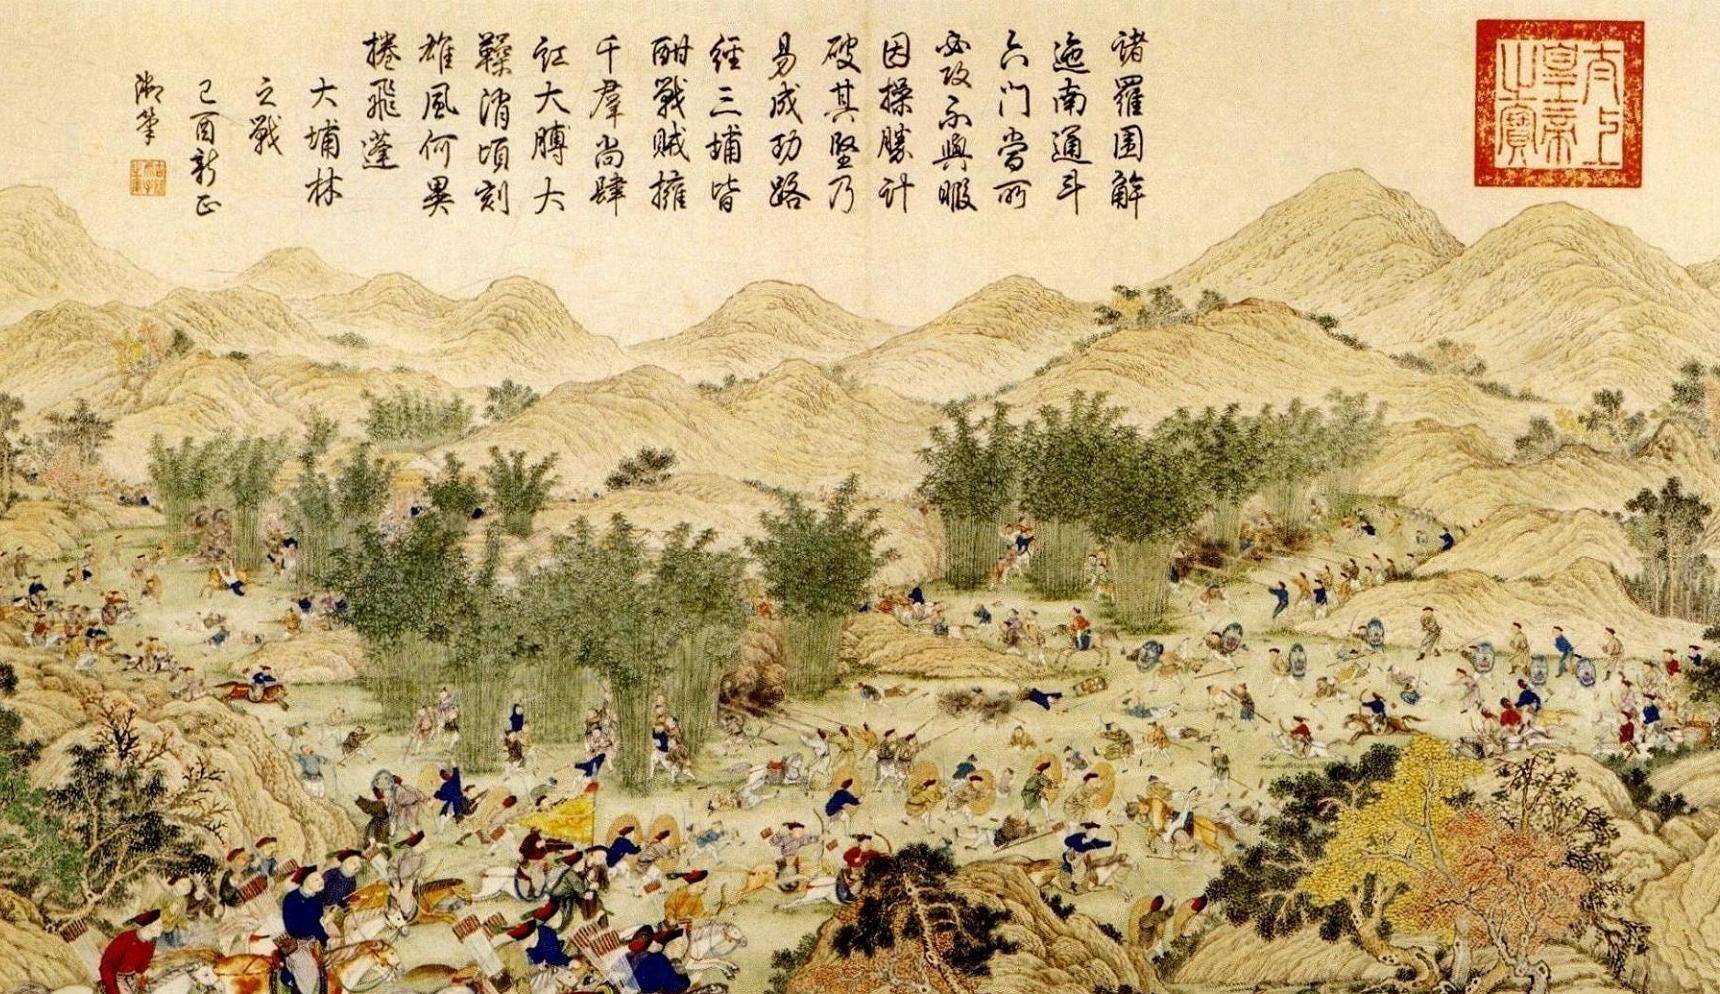 太上
皇帝
之寶
諸羅圍解
迤南通斗
六门當所
必攻不與暇
因操勝計
破其堅乃
易成功路
經三埔皆
酣戰賊擁
千羣尚肆
紅大膊大
消頃刻
雄風何異
捲飛蓬
大埔林
之戰
己酉新正
御筆